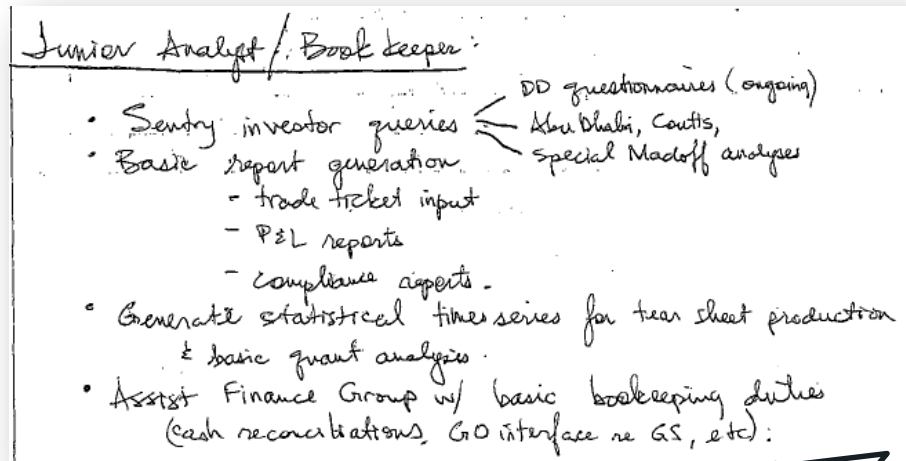 Junior Analyst / Bookkeeper:
• Sentry investor queries
DD questionnaires (ongoing)
Abu Dhabi, Coutts,
Special Madoff analyses
• Basic report generation
- trade ticket input
- P&L reports
- compliance reports.
• Generate statistical times series for tear sheet production
& basic quant analysis.
• Assist Finance Group w/ basic bookeeping duties
(cash reconciliations, GO interface re GS, etc):